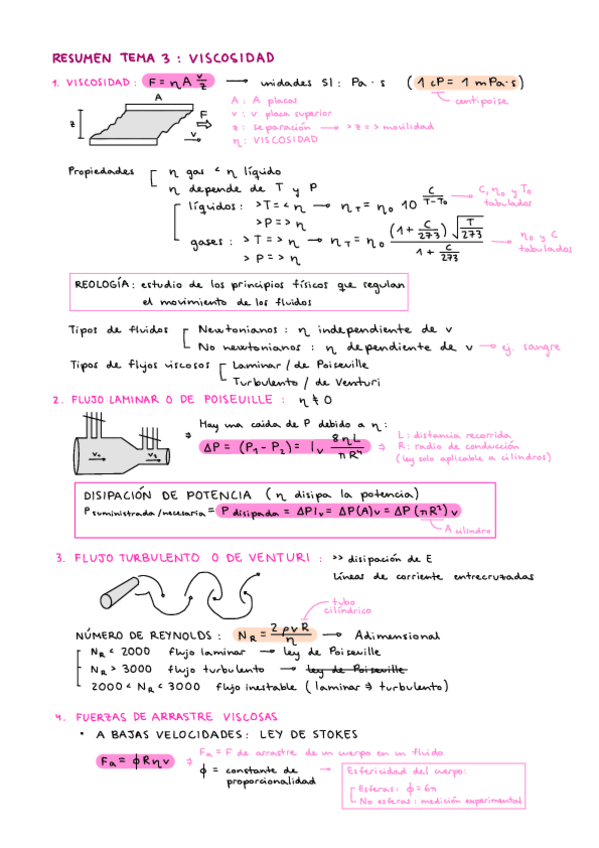 RESUMEN TEMA 3 : VISCOSIDAD
1. VISCOSIDAD : F = η A v/z → unidades SI : Pa · s ( 1 cP = 1 mPa·s )
centipoise
A
z
F
v
A : A placas
v : v placa superior
z : separación → > z = > movilidad
η : VISCOSIDAD
Propiedades η gas < η líquido
η depende de T y P
líquidos : > T = < η → η_T = η₀ 10^(C/(T-T₀)) → C, η₀ y T₀ tabulados
> P = > η
gases : > T = > η → η_T = η₀ ((1 + C/273) √(T/273)) / (1 + C/273) → η₀ y C tabulados
> P = > η
REOLOGÍA : estudio de los principios físicos que regulan
el movimiento de los fluidos
Tipos de fluidos Newtonianos : η independiente de v
No newtonianos : η dependiente de v → ej. sangre
Tipos de flujos viscosos Laminar / de Poiseville
Turbulento / de Venturi
2. FLUJO LAMINAR O DE POISEUILLE : η ≠ 0
v₁
v₂
Hay una caida de P debido a η :
⇒ ΔP = (P₁ - P₂) = I_v 8ηL/πR⁴ ⇒
L : distancia recorrida
R : radio de conducción
(ley solo aplicable a cilindros)
DISIPACIÓN DE POTENCIA ( η disipa la potencia)
P suministrada/necesaria = P disipada = ΔP I_v = ΔP(A)v = ΔP (πR²) v
A cilindro
3. FLUJO TURBULENTO O DE VENTURI : >> disipación de E
Líneas de corriente entrecruzadas
tubo
cilíndrico
NÚMERO DE REYNOLDS : N_R = 2ρvR/η → Adimensional
N_R < 2000 flujo laminar → ley de Poiseville
N_R > 3000 flujo turbulento → ley de Poiseville
2000 < N_R < 3000 flujo inestable ( laminar ⇒ turbulento)
4. FUERZAS DE ARRASTRE VISCOSAS
• A BAJAS VELOCIDADES : LEY DE STOKES
Fa = ϕRηv ⇒ Fa = F de arrastre de un cuerpo en un fluido
ϕ = constante de
proporcionalidad
→ Esfericidad del cuerpo:
Esferas : ϕ = 6π
No esferas : medición experimental